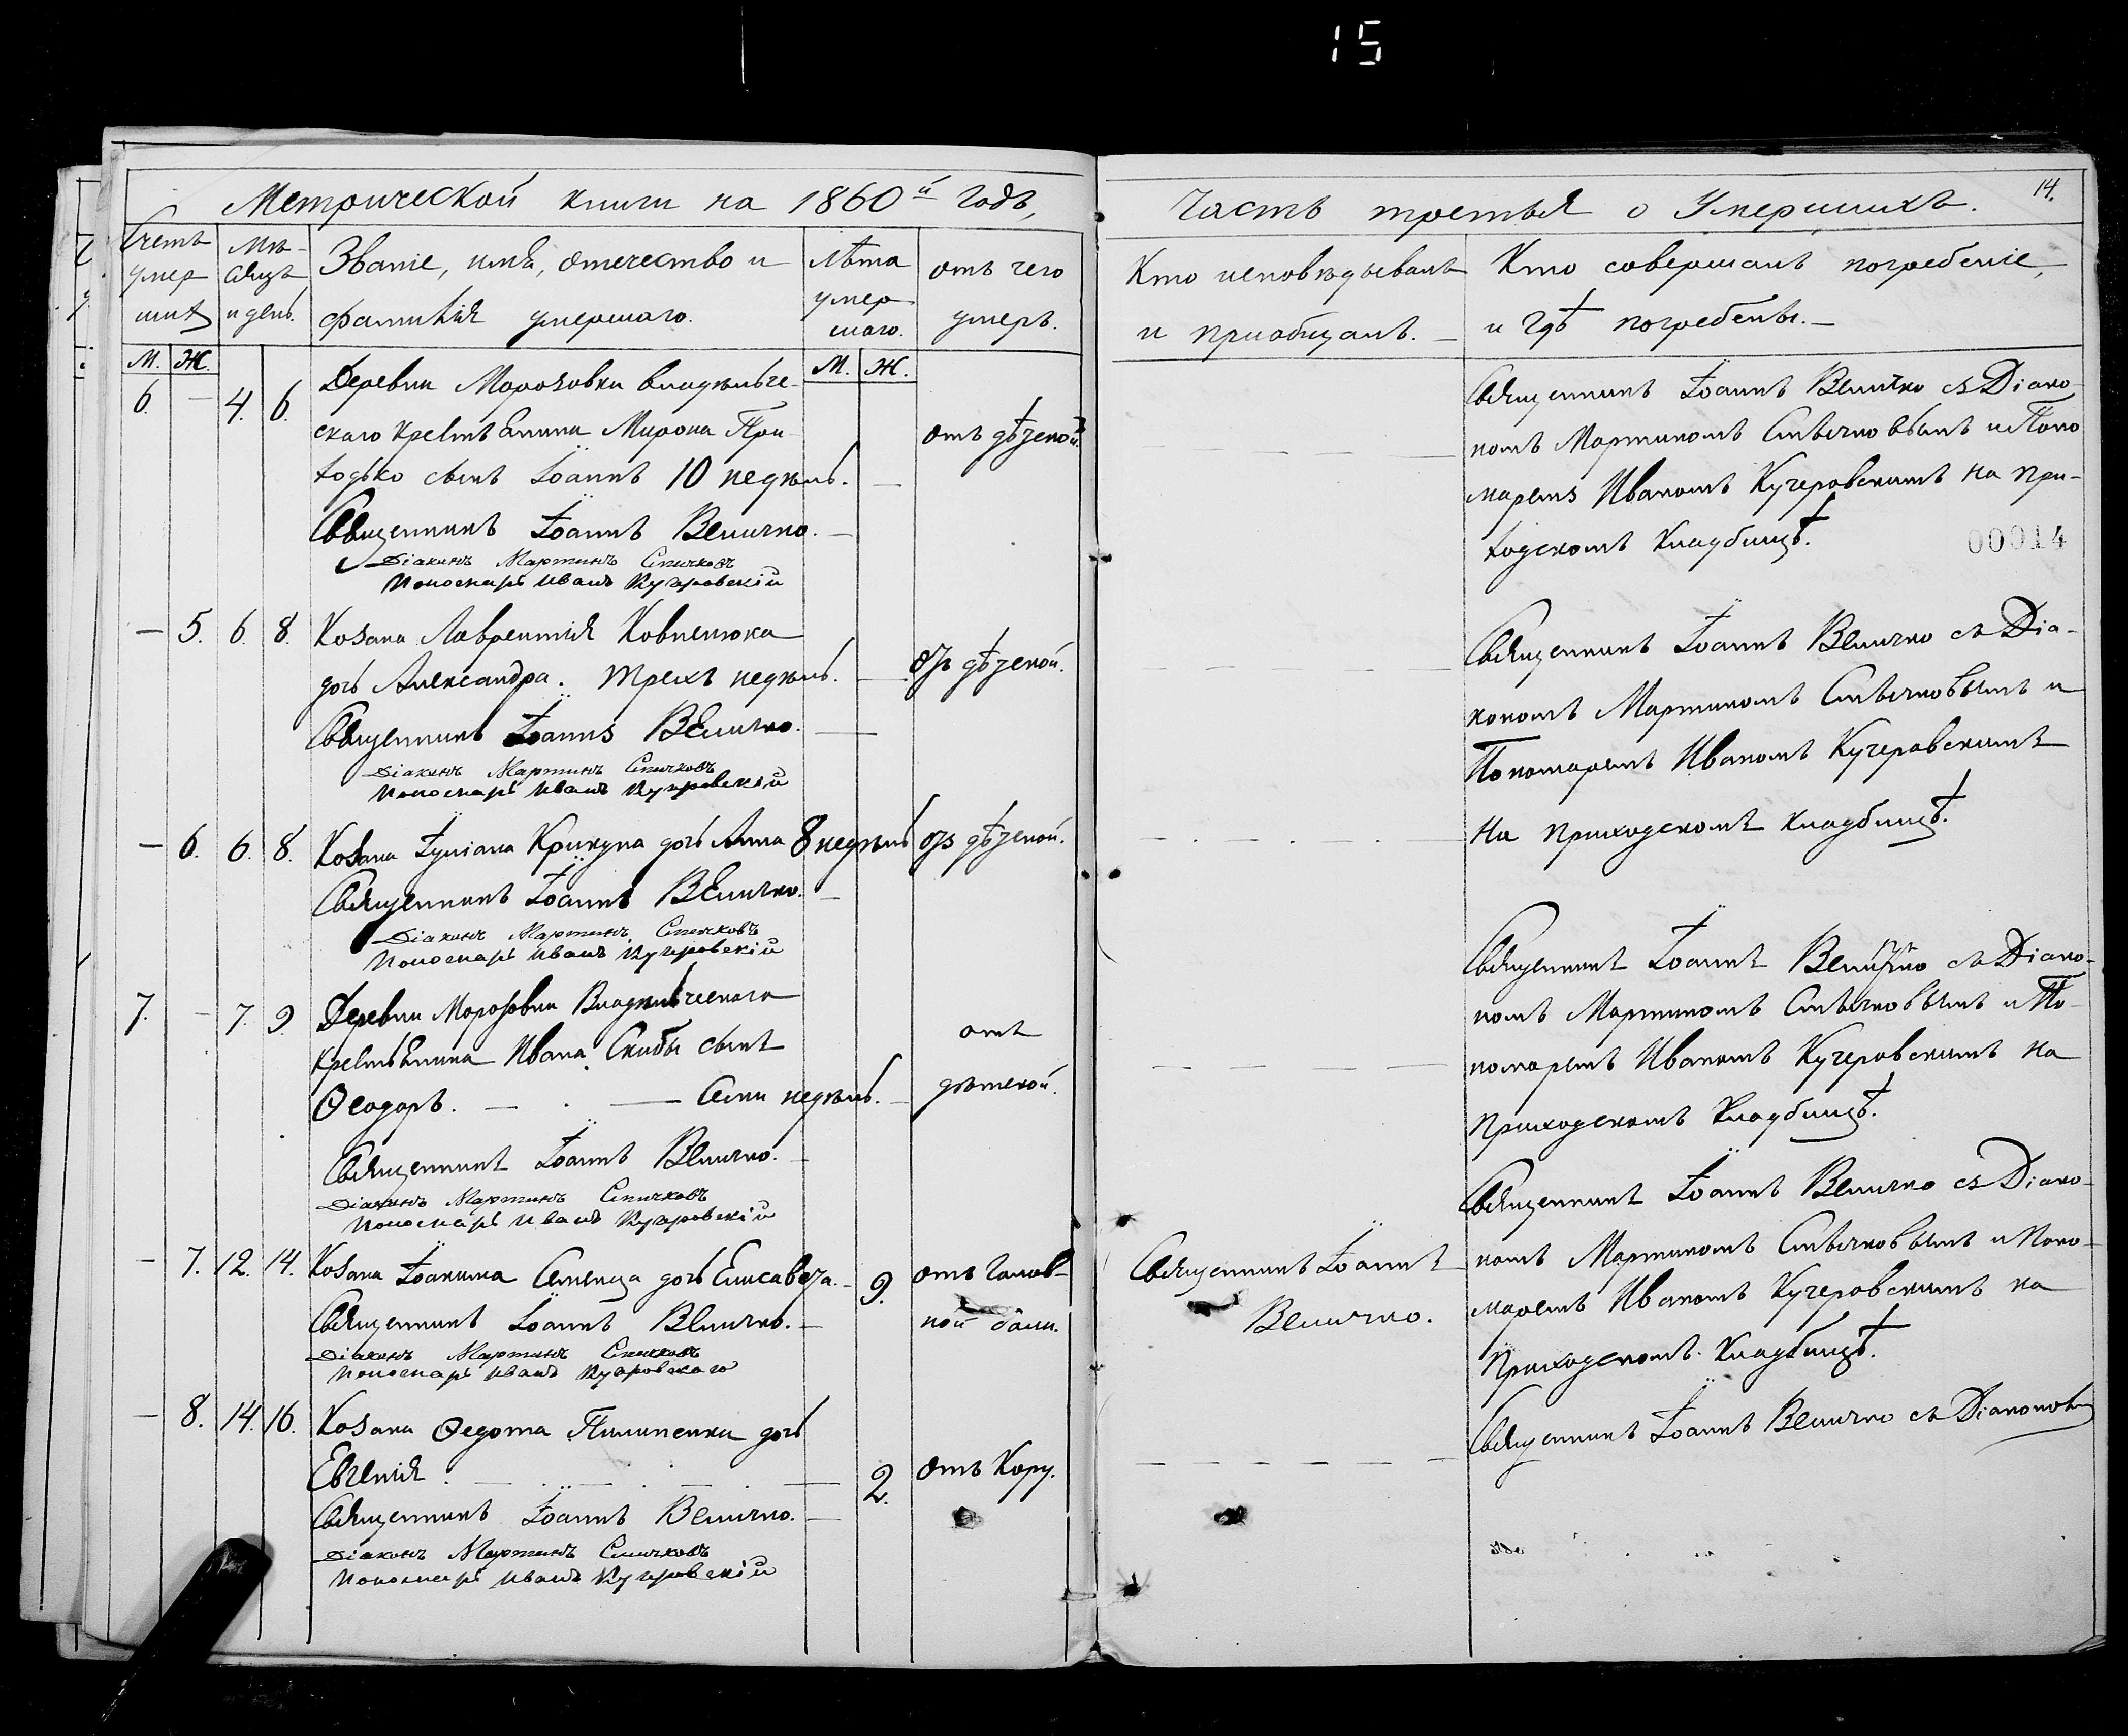 15
Метрической книги на 1860й годъ,
Счетъ умер шихъ
Мѣ- сяцъ и день.
Званіе, имя, отечество и
фамилія умершаго.
Лѣта умер шаго.
отъ чего умеръ.
М. Ж.
М. Ж.
6. — 4. 6.
Деревни Морозовки владѣльче-
скаго крестьянина Мирона При-
ходько сынъ Іоаннъ 10 недѣль. —
отъ дѣтской.
Священникъ Іоаннъ Величко. —
Діаконъ Мартинъ Спичковъ
Пономарь Иванъ Кучеровскій
— 5. 6. 8. Козака Лаврентія Ковпенюка
дочь Александра. Трехъ недѣль. — отъ дѣтской.
Священникъ Іоаннъ Величко. —
Діаконъ Мартинъ Спичковъ
Пономарь Иванъ Кучеровскій
— 6. 6. 8. Козака Іуліана Крикуна дочь Анна 8 недѣль отъ дѣтской.
Священникъ Іоаннъ Величко. —
Діаконъ Мартинъ Спичковъ
Пономарь Иванъ Кучеровскій
7. — 7. 9. Деревни Морозовки Владѣльческаго
крестьянина Ивана Скибы сынъ
Ѳеодоръ. — . — Семи недѣль. —
отъ
дѣтской.
Священникъ Іоаннъ Величко. —
Діаконъ Мартинъ Спичковъ
Пономарь Иванъ Кучеровскій
— 7. 12. 14. Козака Іоакима Семенца дочь Елисавета. — 9. отъ голов-
ной боли.
Священникъ Іоаннъ Величко. —
Діаконъ Мартинъ Спичковъ
Пономарь Иванъ Кучеровскаго
— 8. 14. 16. Козака Ѳедота Пилипенка дочь
Евгенія. — 2. отъ Кору.
Священникъ Іоаннъ Величко. —
Діаконъ Мартинъ Спичковъ
Пономарь Иванъ Кучеровскій
Часть третья о Умершихъ.
14.
Кто исповѣдывалъ
и приобщалъ. —
Кто совершалъ погребеніе,
и гдѣ погребены. —
Священникъ Іоаннъ Величко съ Діако-
номъ Мартиномъ Спѣчковымъ и Поно
маремъ Иваномъ Кучеровскимъ на при-
ходскомъ Кладбищѣ.
00014
Священникъ Іоаннъ Величко съ Діа-
кономъ Мартиномъ Спѣчковымъ и
Пономаремъ Иваномъ Кучеровскимъ
на приходскомъ кладбищѣ.
Священникъ Іоаннъ Величко съ Діако-
номъ Мартиномъ Спѣчковымъ и По-
номаремъ Иваномъ Кучеровскимъ на
приходскомъ Кладбищѣ.
Священникъ Іоаннъ
Величко.
Священникъ Іоаннъ Величко съ Діако-
номъ Мартиномъ Спѣчковымъ и Поно-
маремъ Иваномъ Кучеровскимъ на
Приходскомъ Кладбищѣ.
Священникъ Іоаннъ Величко съ Діакономъ